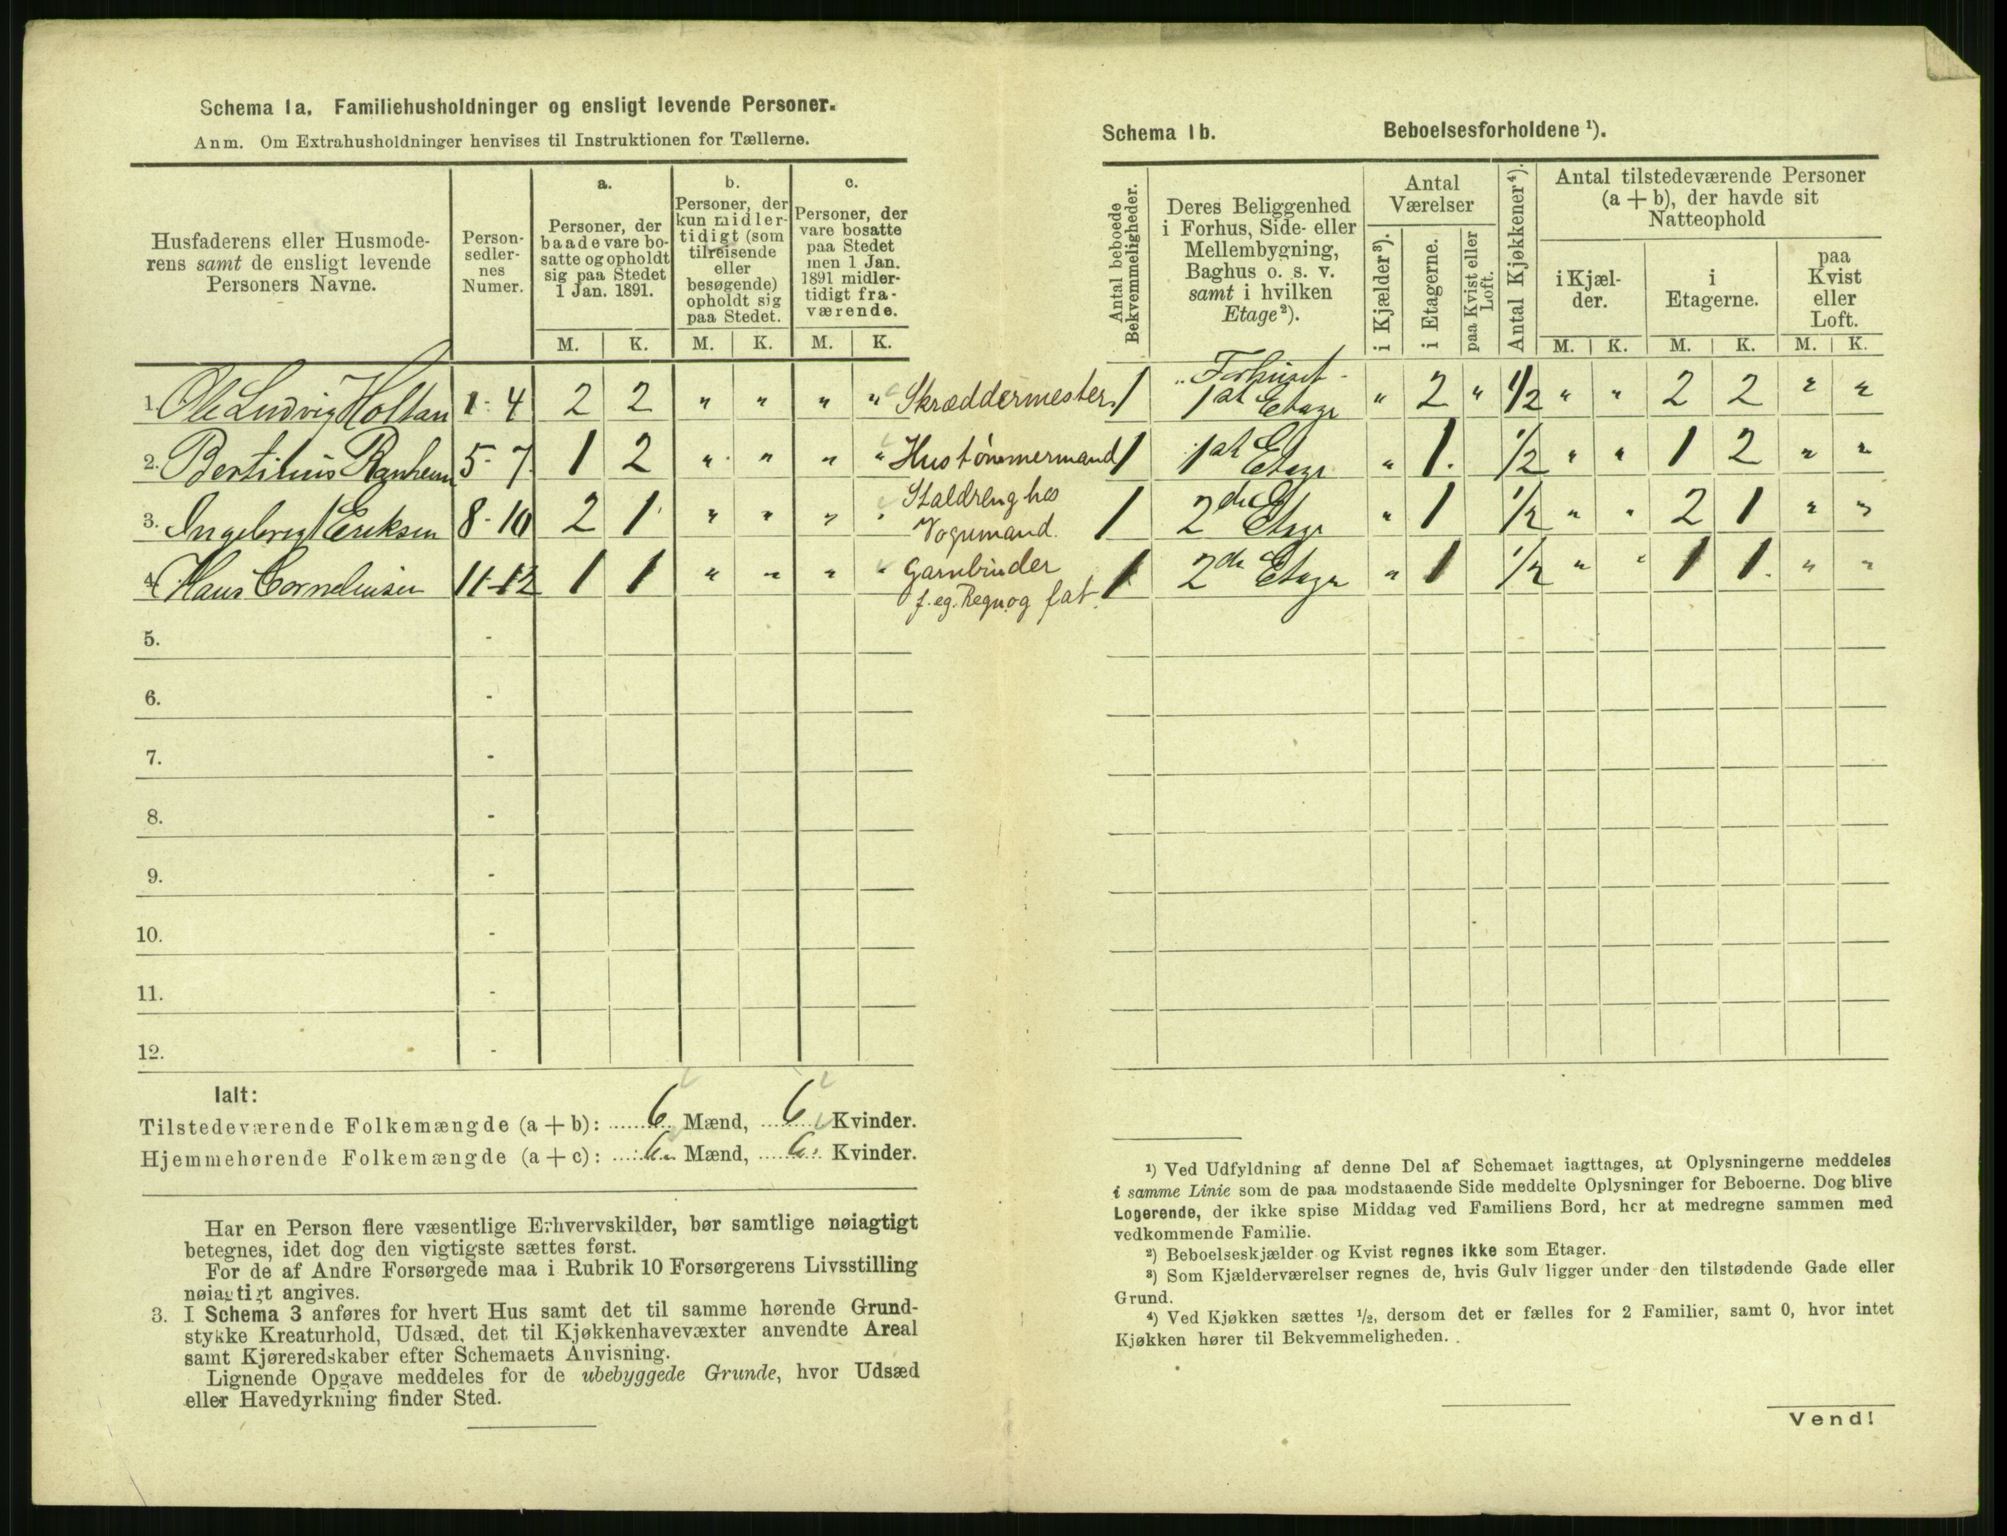 Schema 1a. Familiehusholdninger og ensligt levende Personer.
Anm. Om Extrahusholdninger henvises til Instruktionen for Tællerne.
Husfaderens eller Husmode-
rens samt de ensligt levende
Personers Navne.
Person-
sedler-
nes
Numer.
a.
Personer, der
baade vare bo-
satte og opholdt
sig paa Stedet
1 Jan. 1891.
b.
Personer, der
kun midler-
tidigt (som
tilreisende
eller
besøgende)
opholdt sig
paa Stedet.
c.
Personer, der
vare bosatte
paa Stedet
men 1 Jan.
1891 midler-
tidigt fra-
værende.
M. K. M. K. M. K.
1. Ole Ludvig Holtan 1 - 4 2 2 " " " " Skræddermester
2. Bertinius Ranheim 5 - 7 1 2 " " " " Hustømmermand
3. Ingebrigt Eriksen 8 - 10 2 1 " " " " Staldreng hos
Vognmand.
4. Hans Cornelinsen 11 - 12 1 1 " " " " Garnbinder
f. eg. Regn. og fat.
5. -
6. -
7. -
8. -
9. -
10. -
11. -
12. -
Ialt:
Tilstedeværende Folkemængde (a + b): 6 Mænd, 6 Kvinder.
Hjemmehørende Folkemængde (a + c): 6 Mænd, 6 Kvinder.
Har en Person flere væsentlige Erhvervskilder, bør samtlige nøiagtigt
betegnes, idet dog den vigtigste sættes først.
For de af Andre Forsørgede maa i Rubrik 10 Forsørgerens Livsstilling
nøiagtigt angives.
3. I Schema 3 anføres for hvert Hus samt det til samme hørende Grund-
stykke Kreaturhold, Udsæd, det til Kjøkkenhavevæxter anvendte Areal
samt Kjøreredskaber efter Schemaets Anvisning.
Lignende Opgave meddeles for de ubebyggede Grunde, hvor Udsæd
eller Havedyrkning finder Sted.
Schema 1b. Beboelsesforholdene ¹).
Antal beboede
Bekvemmeligheder.
Deres Beliggenhed
i Forhus, Side- eller
Mellembygning,
Baghus o. s. v.
samt i hvilken
Etage²).
Antal
Værelser
i Kjælder³).
i Etagerne.
paa Kvist eller
Loft.
Antal Kjøkkener⁴).
Antal tilstedeværende Personer
(a + b), der havde sit
Natteophold
i Kjæl-
der.
i
Etagerne.
paa
Kvist
eller
Loft.
M. K. M. K. M. K.
1 " Forhuset
1ste Etage " 2 " 1/2 " " 2 2 " "
1 1ste Etage " 1. 1/2 " " 1 2 " "
1 2de Etage " 1 1/2 " " 2 1 " "
1 2de Etage " 1 1/2 " " 1 1. " "
¹) Ved Udfyldning af denne Del af Schemaet iagttages, at Oplysningerne meddeles
i samme Linie som de paa modstaaende Side meddelte Oplysninger for Beboerne. Dog blive
Logerende, der ikke spise Middag ved Familiens Bord, her at medregne sammen med
vedkommende Familie.
²) Beboelseskjælder og Kvist regnes ikke som Etager.
³) Som Kjælderværelser regnes de, hvis Gulv ligger under den tilstødende Gade eller
Grund.
⁴) Ved Kjøkken sættes ½, dersom det er fælles for 2 Familier, samt 0, hvor intet
Kjøkken hører til Bekvemmeligheden.
Vend!